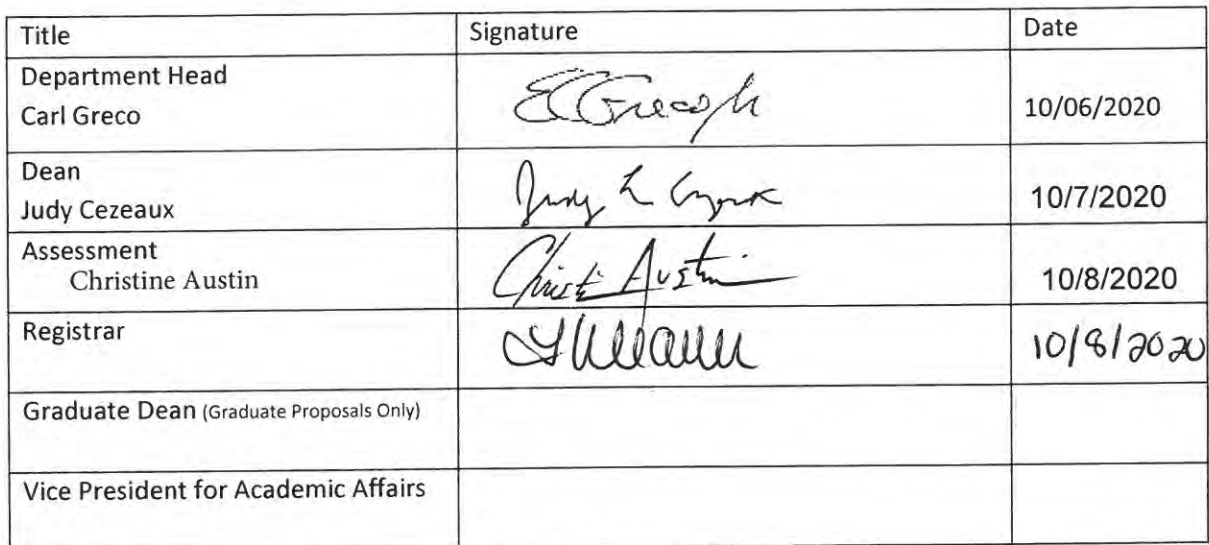 Title Signature Date
Department Head
Carl Greco ECGreco Jr 10/06/2020
Dean
Judy Cezeaux Judy L Cezeaux 10/7/2020
Assessment
Christine Austin Christi Austin 10/8/2020
Registrar 10/8/2020
Graduate Dean (Graduate Proposals Only)
Vice President for Academic Affairs